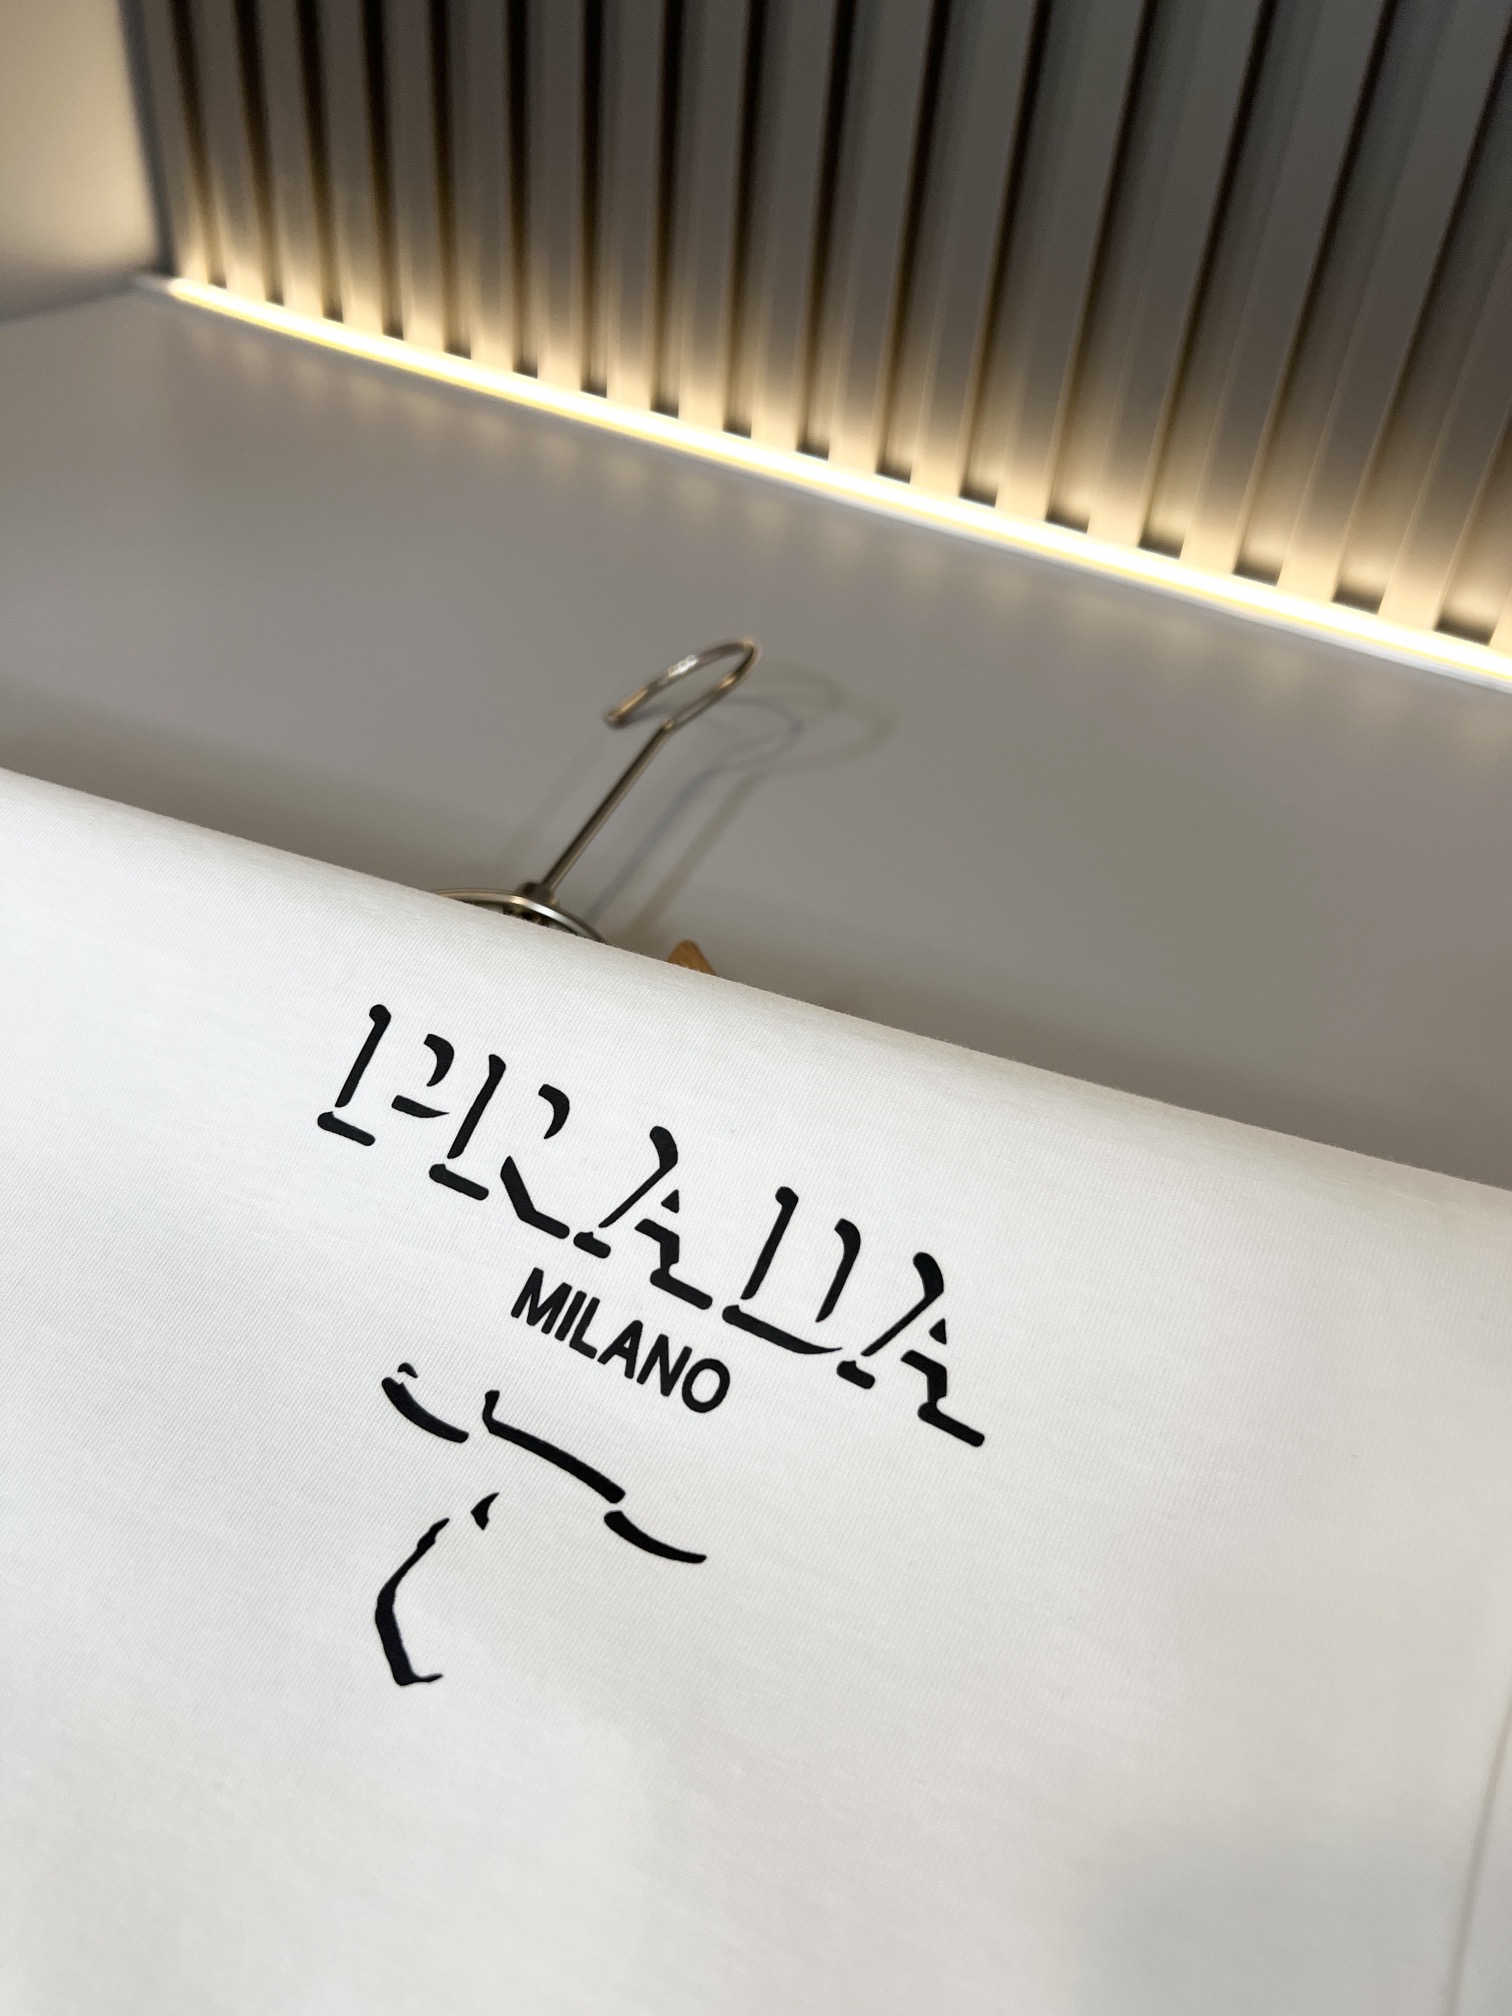 PRADA
MILANO